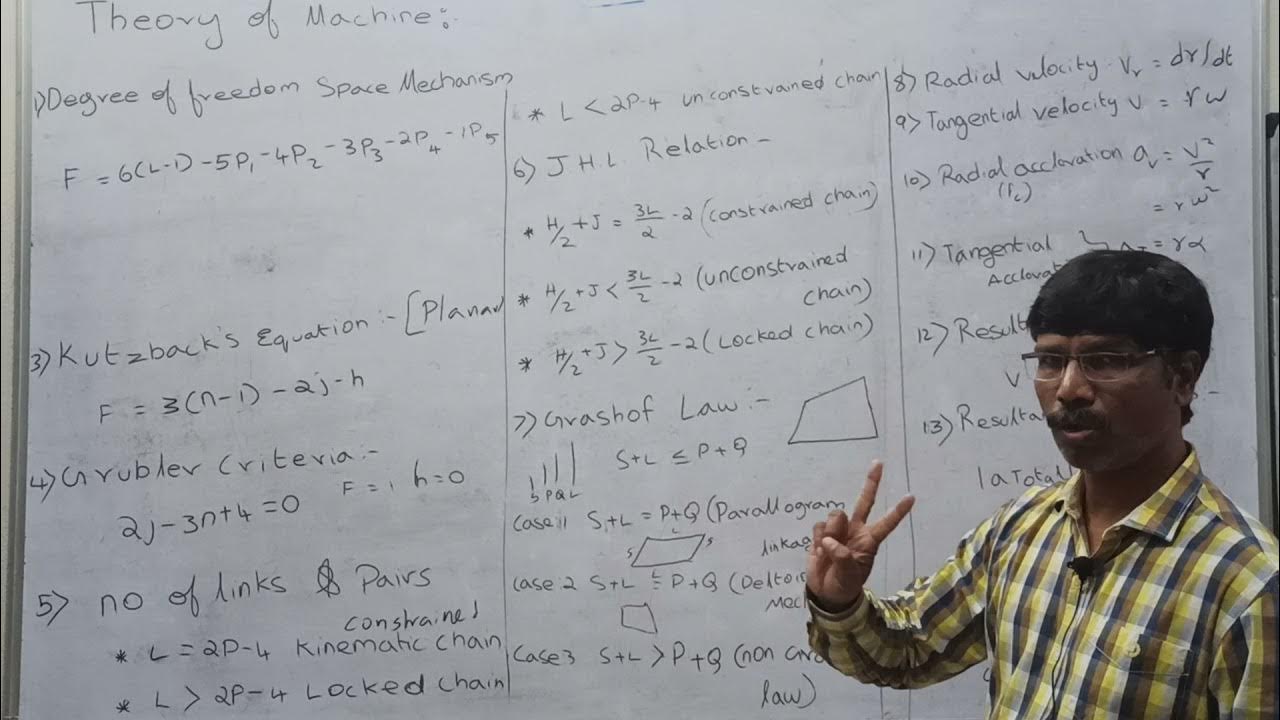 Theory of Machine:-
1) Degree of freedom Space Mechanism
F = 6(L-1) - 5P₁ - 4P₂ - 3P₃ - 2P₄ - 1P₅
3) Kutzback's Equation :- [Planar
F = 3(n-1) - 2j - h
4) Grubler Criteria:-
F = 1, h=0
2j - 3n + 4 = 0
5) no of links & Pairs
constrained
* L = 2P-4 Kinematic chain
* L > 2P-4 Locked chain
* L < 2P-4 unconstrained chain
6) J.H.L. Relation -
* H/2 + J = 3L/2 - 2 (constrained chain)
* H/2 + J < 3L/2 - 2 (unconstrained
chain)
* H/2 + J > 3L/2 - 2 (Locked chain)
7) Grashof Law:-
S+L ≤ P+Q
S P Q L
Case 1) S+L = P+Q (Parallogram
linkag
L
S S
Case 2 S+L = P+Q (Deltoi
Mec
Case 3 S+L > P+Q (non Gra
law)
8) Radial velocity. Vᵣ = dr/dt
9) Tangential velocity V = rω
10) Radial acclovation aᵥ = V²/r
(fc)
= rω²
11) Tangential = rα
Acclovat
12) Result
V
13) Resulta :-
|a Total